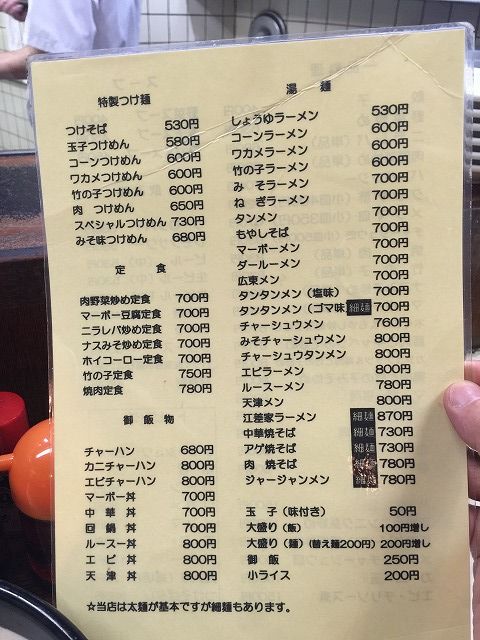 特製つけ麺
つけそば 530円
玉子つけめん 580円
コーンつけめん 600円
ワカメつけめん 600円
竹の子つけめん 600円
肉 つけめん 650円
スペシャルつけめん 730円
みそ味つけめん 680円
定 食
肉野菜炒め定食 700円
マーボー豆腐定食 700円
ニラレバ炒め定食 700円
ナスみそ炒め定食 700円
ホイコーロー定食 700円
竹の子定食 750円
焼肉定食 780円
御 飯 物
チャーハン 680円
カニチャーハン 800円
エビチャーハン 800円
マーボー丼 700円
中 華 丼 700円
回 鍋 丼 700円
ルースー丼 800円
エ ビ 丼 800円
天 津 丼 800円
湯 麺
しょうゆラーメン 530円
コーンラーメン 600円
ワカメラーメン 600円
竹の子ラーメン 600円
み そラーメン 700円
ね ぎラーメン 700円
タンメン 700円
もやしそば 700円
マーボーメン 700円
ダールーメン 700円
広東メン 700円
タンタンメン（塩味） 700円
タンタンメン（ゴマ味 細麺 700円
チャーシュウメン 760円
みそチャーシュウメン 800円
チャーシュウタンメン 800円
エビラーメン 800円
ルースーメン 780円
天津メン 800円
江差家ラーメン 細麺 870円
中華焼そば 細麺 730円
アゲ焼そば 細麺 730円
肉 焼そば 細麺 780円
ジャージャンメン 細麺 780円
玉 子（味付き） 50円
大盛り（飯） 100円増し
大盛り（麺）（替え麺200円）200円増し
御 飯 250円
小ライス 200円
☆当店は太麺が基本ですが細麺もあります。